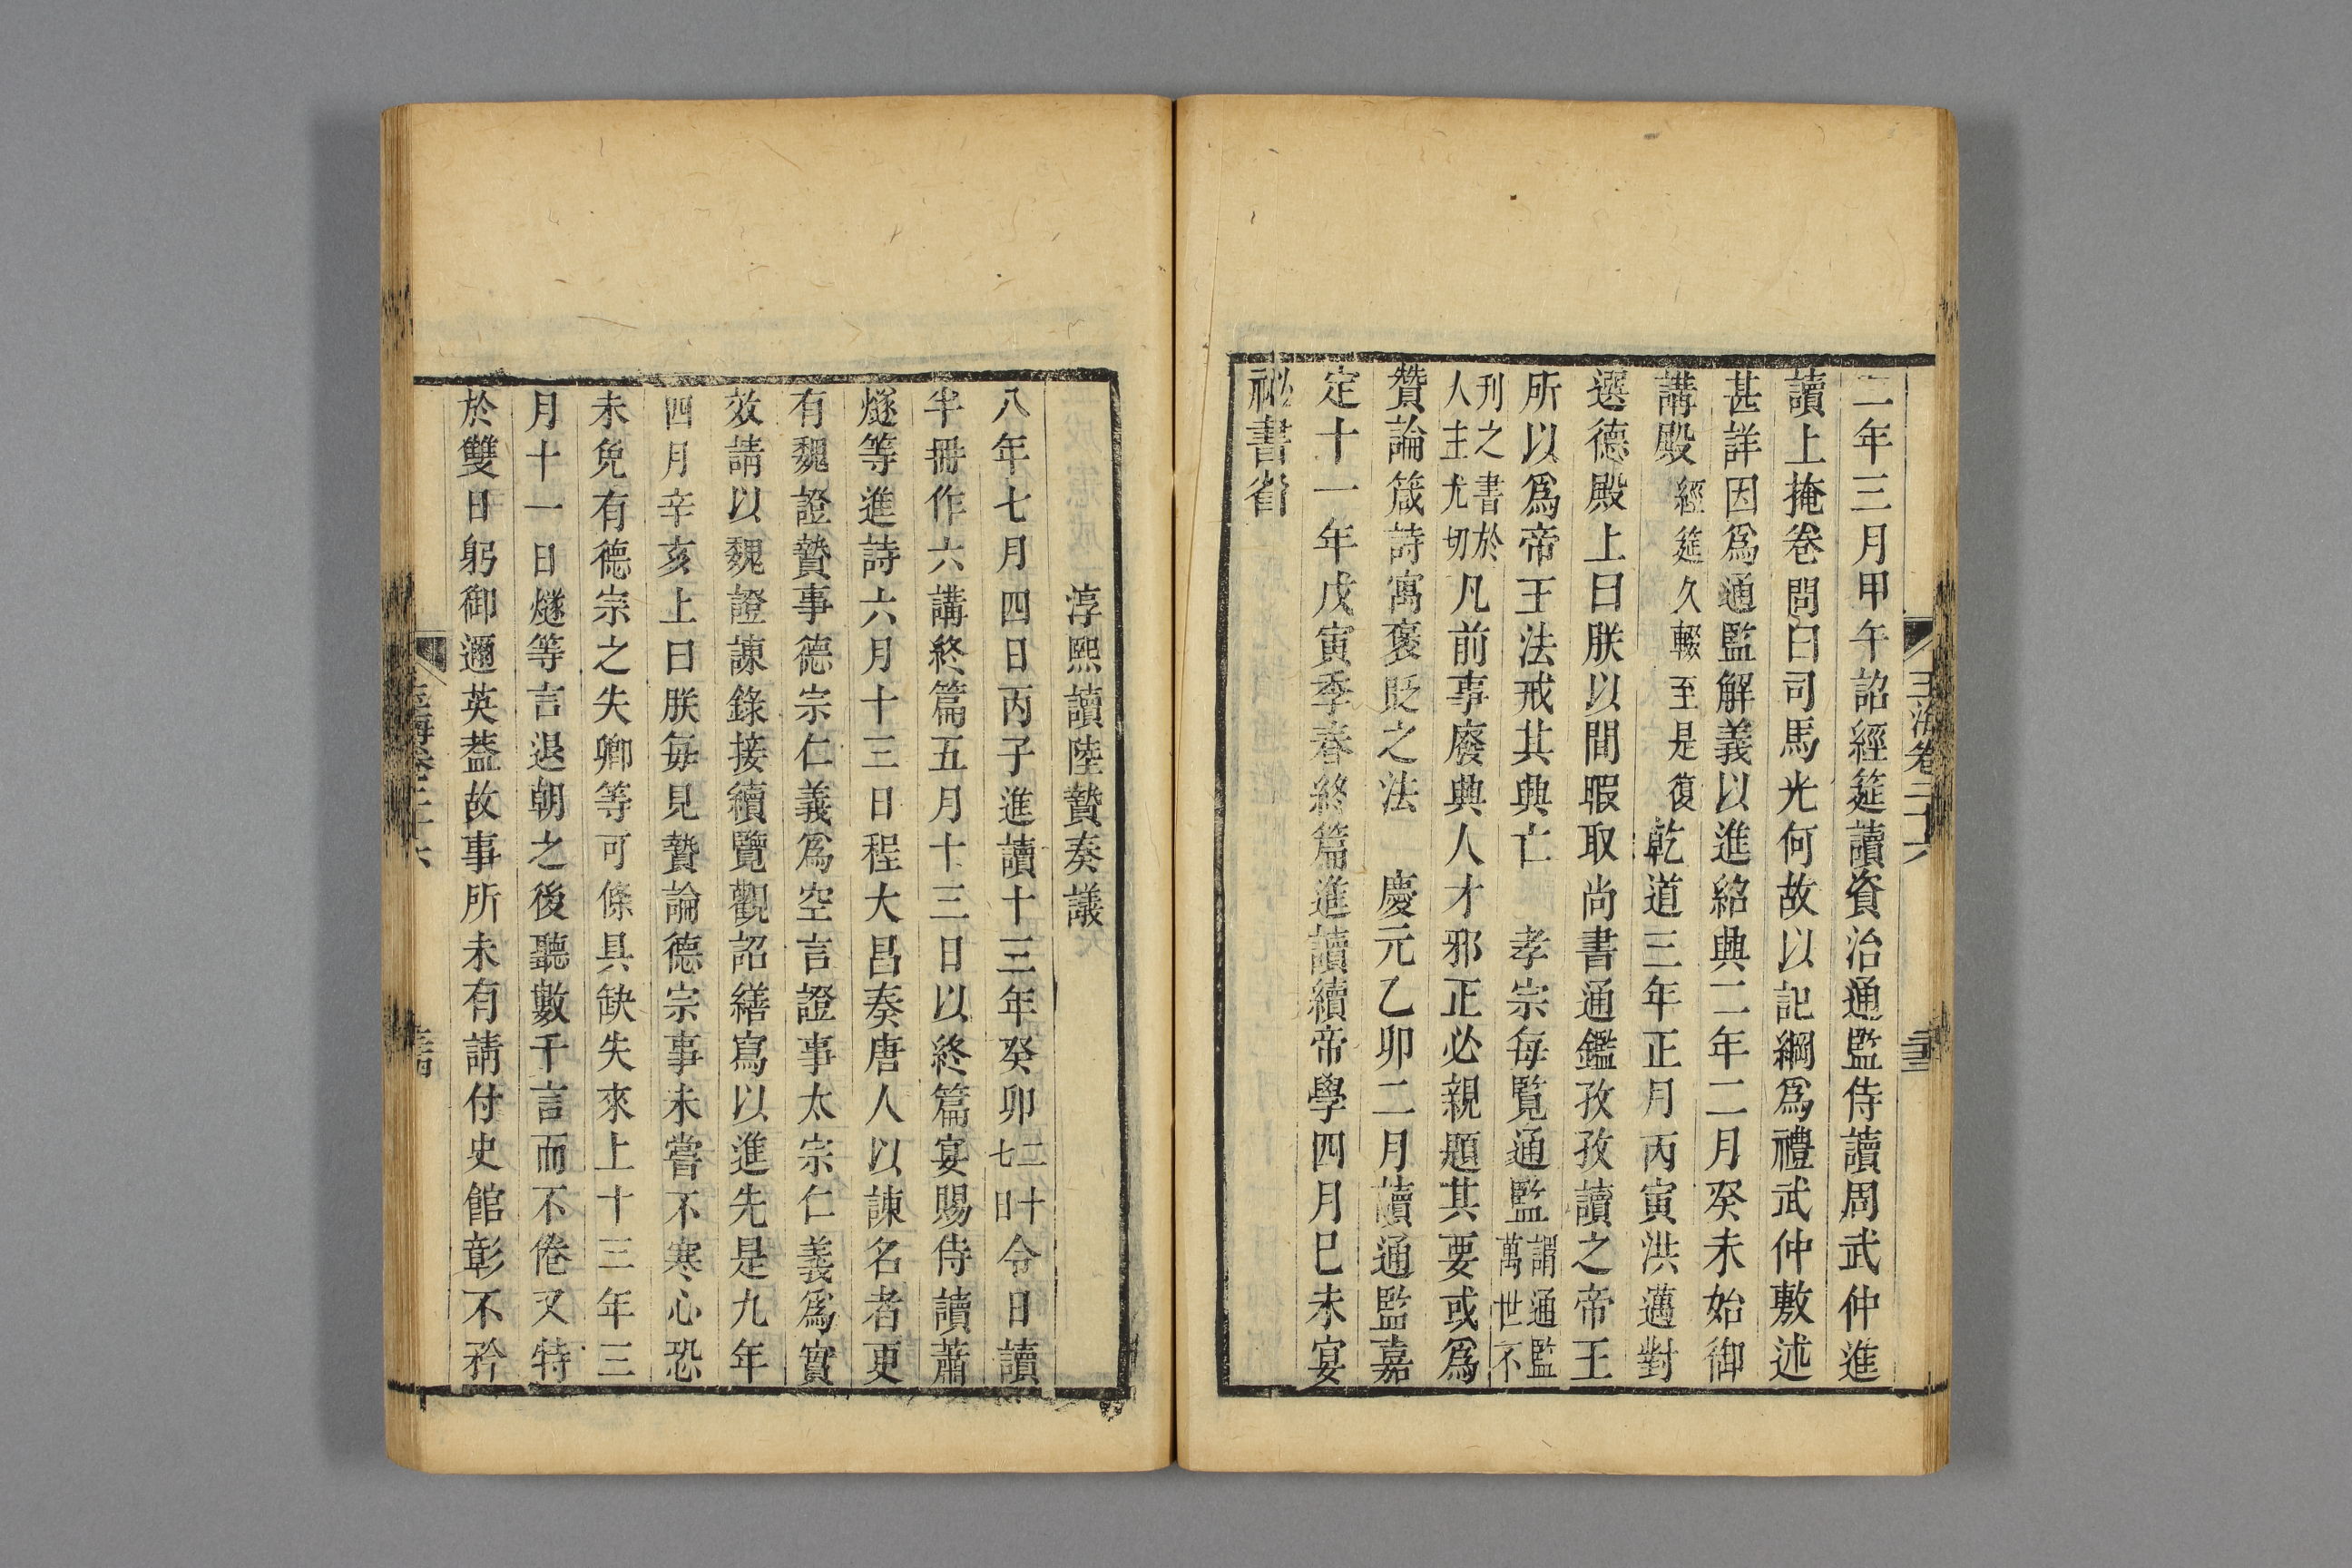 玉海卷二十六
二年三月甲午詔經筵讀資治通監侍讀周武仲進
讀上掩卷問曰司馬光何故以記綱爲禮武仲敷述
甚詳因爲通監解義以進紹興二年二月癸未始御
講殿經筵久輟至是復乾道三年正月丙寅洪邁對
選德殿上曰朕以間暇取尚書通鑑孜孜讀之帝王
所以爲帝王法戒其典亡　孝宗每覽通監謂通監萬世不
刊之書於人主尤切凡前事廢典人才邪正必親題其要或爲
贊論箴詩寓褒貶之法　慶元乙卯二月讀通監嘉
定十一年戊寅季春終篇進讀續帝學四月巳未宴
祕書省
淳熙讀陸贄奏議
八年七月四日丙子進讀十三年癸卯二十七日令日讀
半冊作六講終篇五月十三日以終篇宴賜侍讀蕭
燧等進詩六月十三日程大昌奏唐人以諫名者更
有魏證贄事德宗仁義爲空言證事太宗仁義爲實
效請以魏證諫錄接續覽觀詔繕寫以進先是九年
四月辛亥上曰朕每見贄論德宗事未嘗不寒心恐
未免有德宗之失卿等可條具缺失來上十三年三
月十一日燧等言退朝之後聽數千言而不倦又特
於雙日躬御邇英葢故事所未有請付史館彰不矜